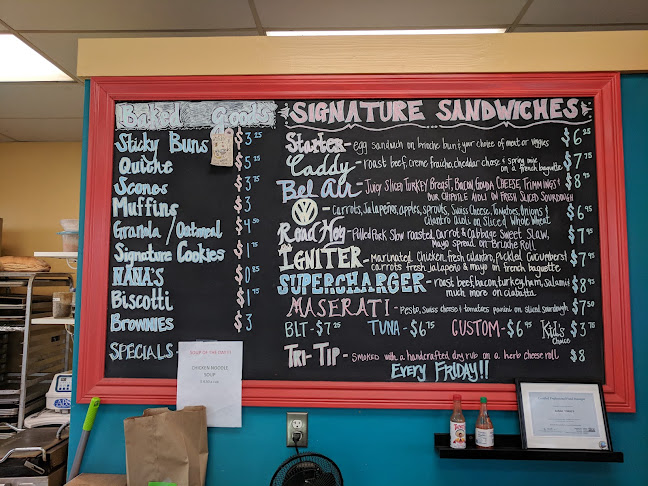 Baked Goods
Sticky Buns $3.25
Quiche $5.25
Scones $3.75
Muffins $3
Granola/Oatmeal $4.50
Signature Cookies $1.75
NANA'S $0.85
Biscotti $1.75
Brownies $3
SPECIALS-
SOUP OF THE DAY!!!
CHICKEN NOODLE
SOUP
SIGNATURE SANDWICHES
Starter- egg sandwich on brioche bun & your choice of meat or veggies $6.25
Caddy- roast beef, creme fraiche, cheddar cheese & spring mix $7.75
on a french baguette
Bel Air- Juicy Sliced Turkey Breast, Bacon, Gouda Cheese, Trimmings & $8.45
our chipotle aioli on Fresh Sliced Sourdough
VW - Carrots, Jalapeños, apples, sprouts, Swiss Cheese, Tomatoes, Onions & $6.95
cilantro aioli on Sliced Whole Wheat
Road Hog- Pulled Pork Slow roasted, Carrot & Cabbage Sweet Slaw, $7.45
Mayo spread on Brioche Roll
IGNITER- Marinated Chicken, fresh cilantro, Pickled Cucumbers, $7.45
carrots, fresh jalapeño & mayo on french baguette
SUPERCHARGER- roast beef, bacon, turkey, ham, Salami & $8.45
much more on ciabatta
MASERATI- pesto, swiss cheese & tomatoes panini on sliced sourdough $7.50
BLT-$7.25 TUNA-$6.75 CUSTOM-$6.45 Kid's Choice $3.75
TRI-TIP- Smoked with a handcrafted dry rub on a herb cheese roll $8
EVERY FRIDAY!!